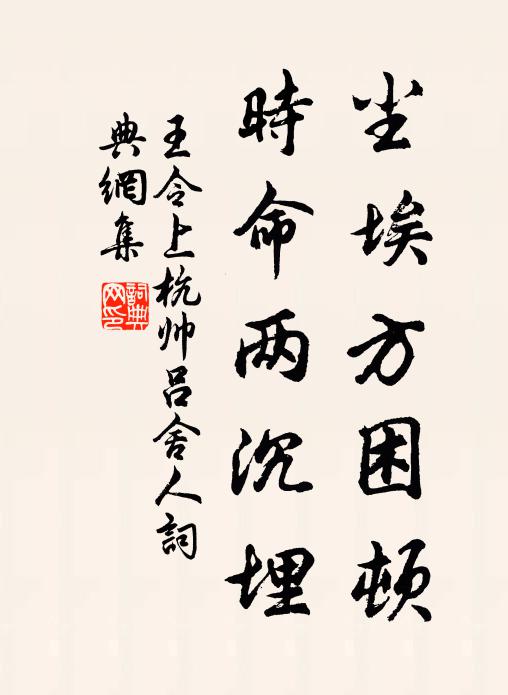 尘埃方困顿
時命两沉埋
王令上杭帅吕舍人詞
典網集
詞典网印